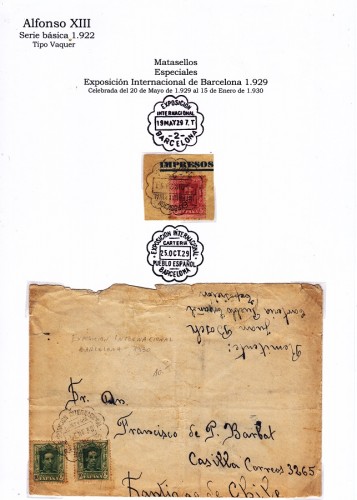 Alfonso XIII
Serie básica 1.922
Tipo Vaquer
Matasellos
Especiales
Exposición Internacional de Barcelona 1.929
Celebrada del 20 de Mayo de 1.929 al 15 de Enero de 1.930
EXPOSICIÓN
INTERNACIONAL
19 MAY 29 7.T
-2-
BARCELONA
IMPRESOS
EXPOSICIÓN INTERNACIONAL
CARTERIA
25 OCT. 29
PUEBLO ESPAÑOL
BARCELONA
Remitente:
Juan Bosch
Cartería Pueblo Español
Exposición
EXPOSICION INTERNACIONAL
BARCELONA
Sr. Dn.
Francisco de P. Barbat
Casilla Correos 3265
Santiago de Chile